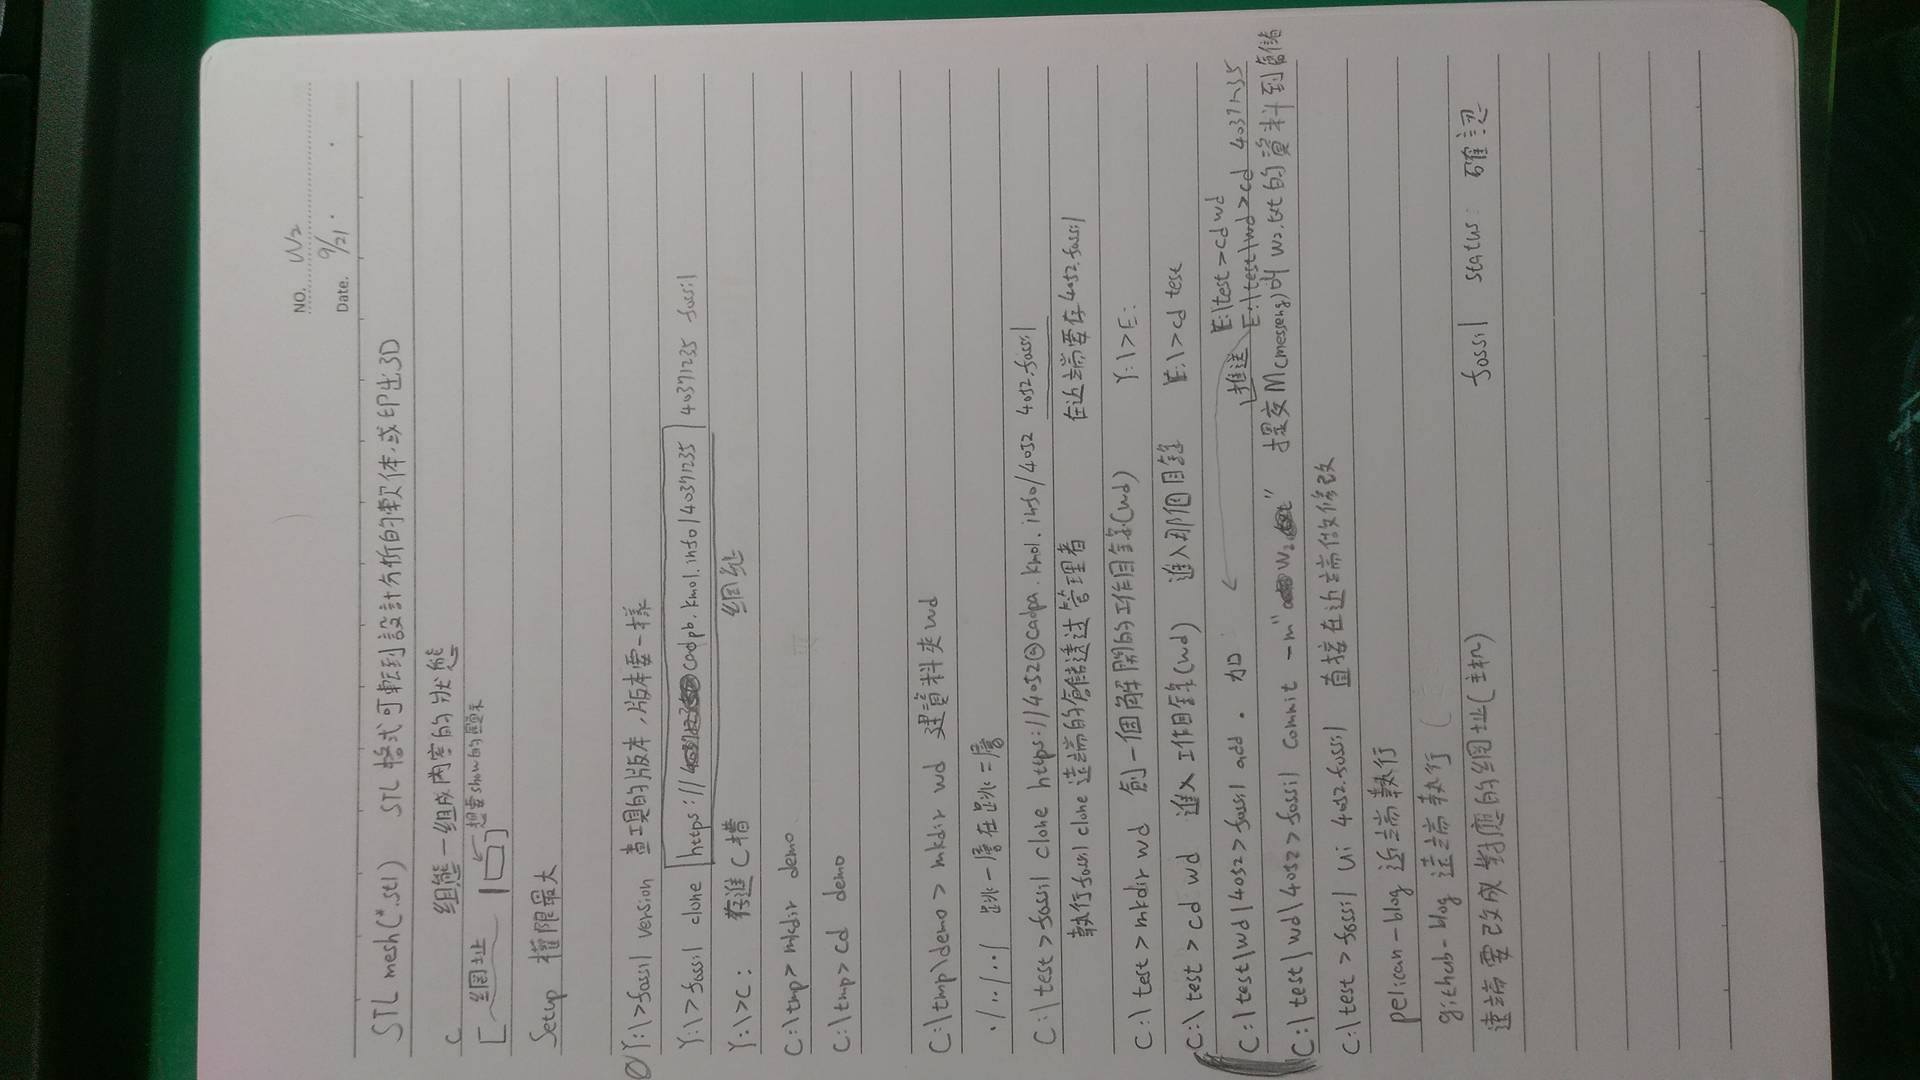 NO. W2
Date. 9/21
STL mesh(*.stl) STL格式可轉到設計分析的軟体,或印出3D
C 組態一組成內容的狀態
[網址 ←想要show的題示
Setup 權限最大
Y:\>fossil version 查工具的版本,版本要一樣
Y:\>fossil clone https://cadpb.kmol.info/40371235 40371235 fossil
Y:\>C: 存進C槽 網址
C:\tmp>mkdir demo
C:\tmp>cd demo
C:\tmp\demo>mkdir wd 建資料夾wd
./../../ 跳一層在跳二層
C:\test>fossil clone https://4052@cadpa.kmol.info/4052 4052.fossil
執行fossil clone 遠端的倉儲透過管理者 在近端要存4052.fossil
C:\test>mkdir wd 創一個解開的工作目錄(wd) Y:\>E:
C:\test>cd wd 進入工作目錄(wd) 進入那個目錄 E:\>cd test
E:\test>cd wd
C:\test\wd\4052>fossil add . 加 推送 E:\test\wd>cd 40371235
C:\test\wd\4052>fossil Commit -m "W2" 提交M(messeng)叫W2.txt的資料到倉儲
C:\test>fossil ui 4052.fossil 直接在近端做修改
pelican-blog 近端執行
github-blog 遠端執行
遠端要改成對應的網址(主机) fossil status: 確認